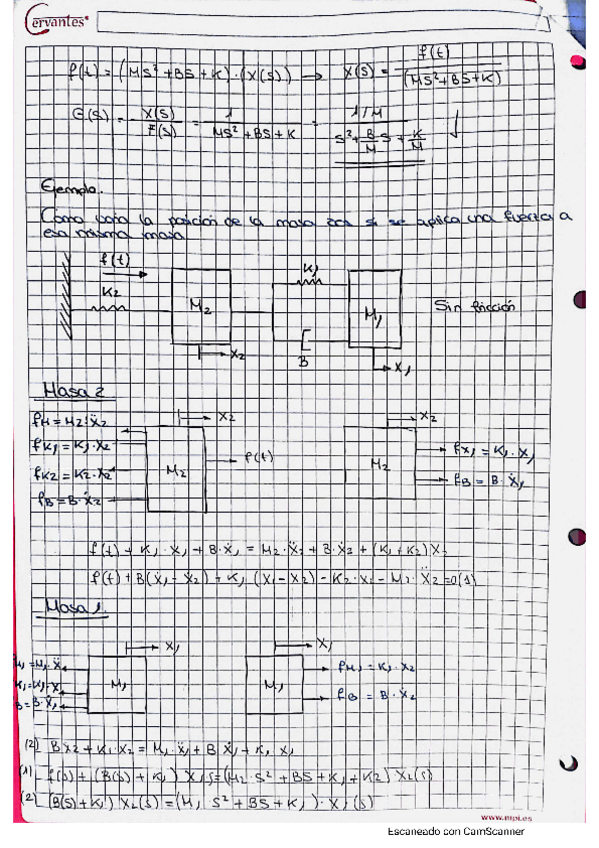 Cervantes
f(t) = (MS² + BS + K) · (X(s)) → X(s) = f(t) / (MS² + BS + K)
G(s) = X(s) / F(s) = 1 / (MS² + BS + K) = (1/M) / (S² + B/M S + K/M)
Ejemplo.
Como varía la posición de la masa si se aplica una fuerza a
esa misma masa
f(t)
K2
M2
X2
K1
B
M1
X1
Sin fricción
Masa 2
X2
fM = M2·Ẍ2
fK1 = K1·X2
fK2 = K2·X2
fB = B·Ẋ2
M2
f(t)
X2
M2
fK1 = K1·X1
fB = B·Ẋ1
f(t) + K1·X1 + B·Ẋ1 = M2·Ẍ2 + B·Ẋ2 + (K1+K2)X2
f(t) + B(Ẋ1 - Ẋ2) + K1(X1 - X2) - K2·X2 - M2·Ẍ2 = 0 (1)
Masa 1.
X1
M1
B = B·Ẋ1
X1
M1
fM1 = K1·X2
fB = B·Ẋ2
(2) BẊ2 + K1·X2 = M1·Ẍ1 + BẊ1 + K1 X1
(1) f(s) + (B(s) + K1) X1s = (M2·S² + BS + K1 + K2) X2(s)
(2) (B(s) + K1) X2(s) = (M1 S² + BS + K1)·X1(s)
www.mpi.es
Escaneado con CamScanner